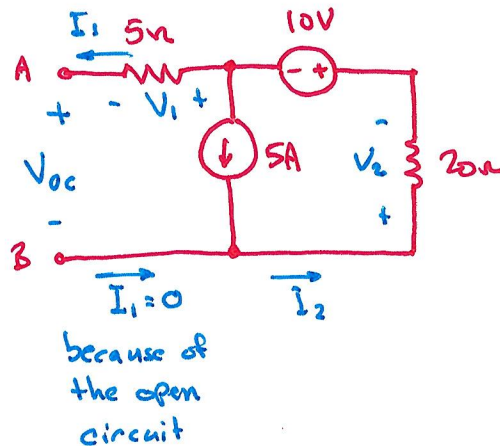 I₁
5Ω
10V
A
- V₁ +
- +
+
Voc
-
5A
-
V₂
+
20Ω
B
I₁=0
I₂
because of
the open
circuit